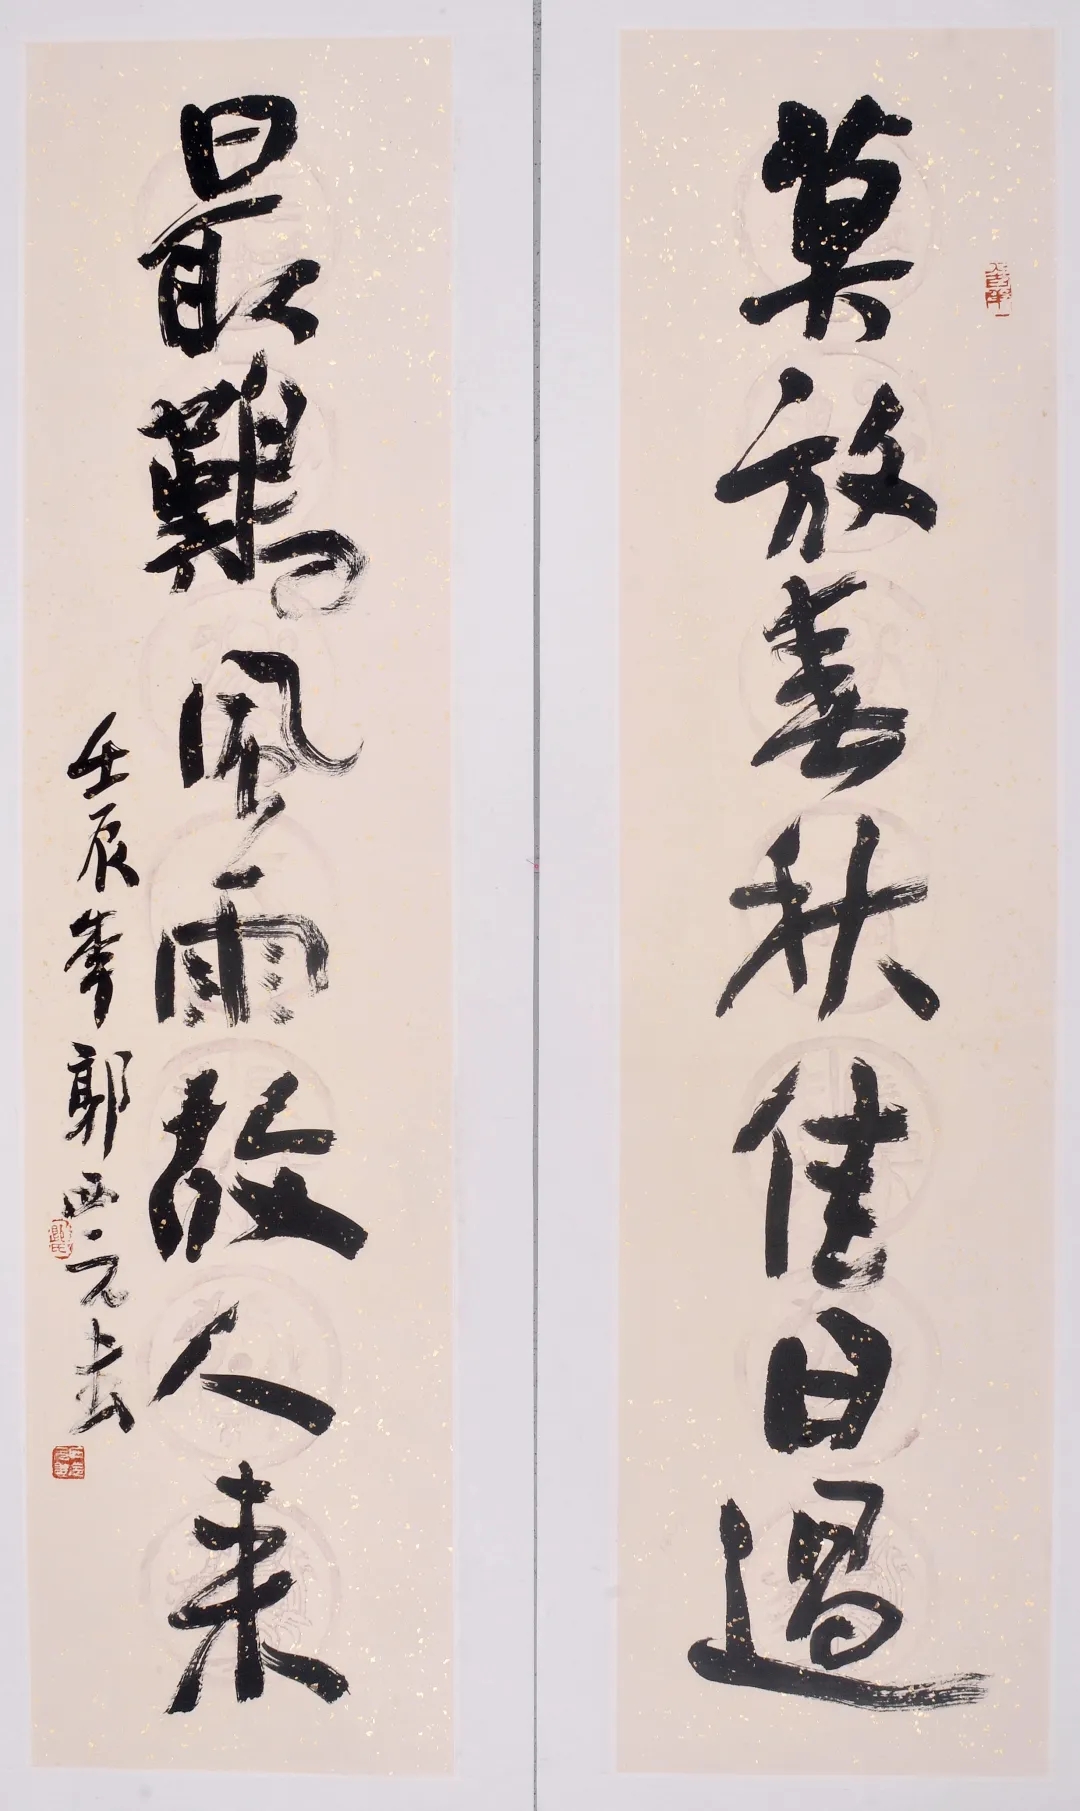 莫放春秋佳日過
最難風雨故人来
壬辰年郭西元書